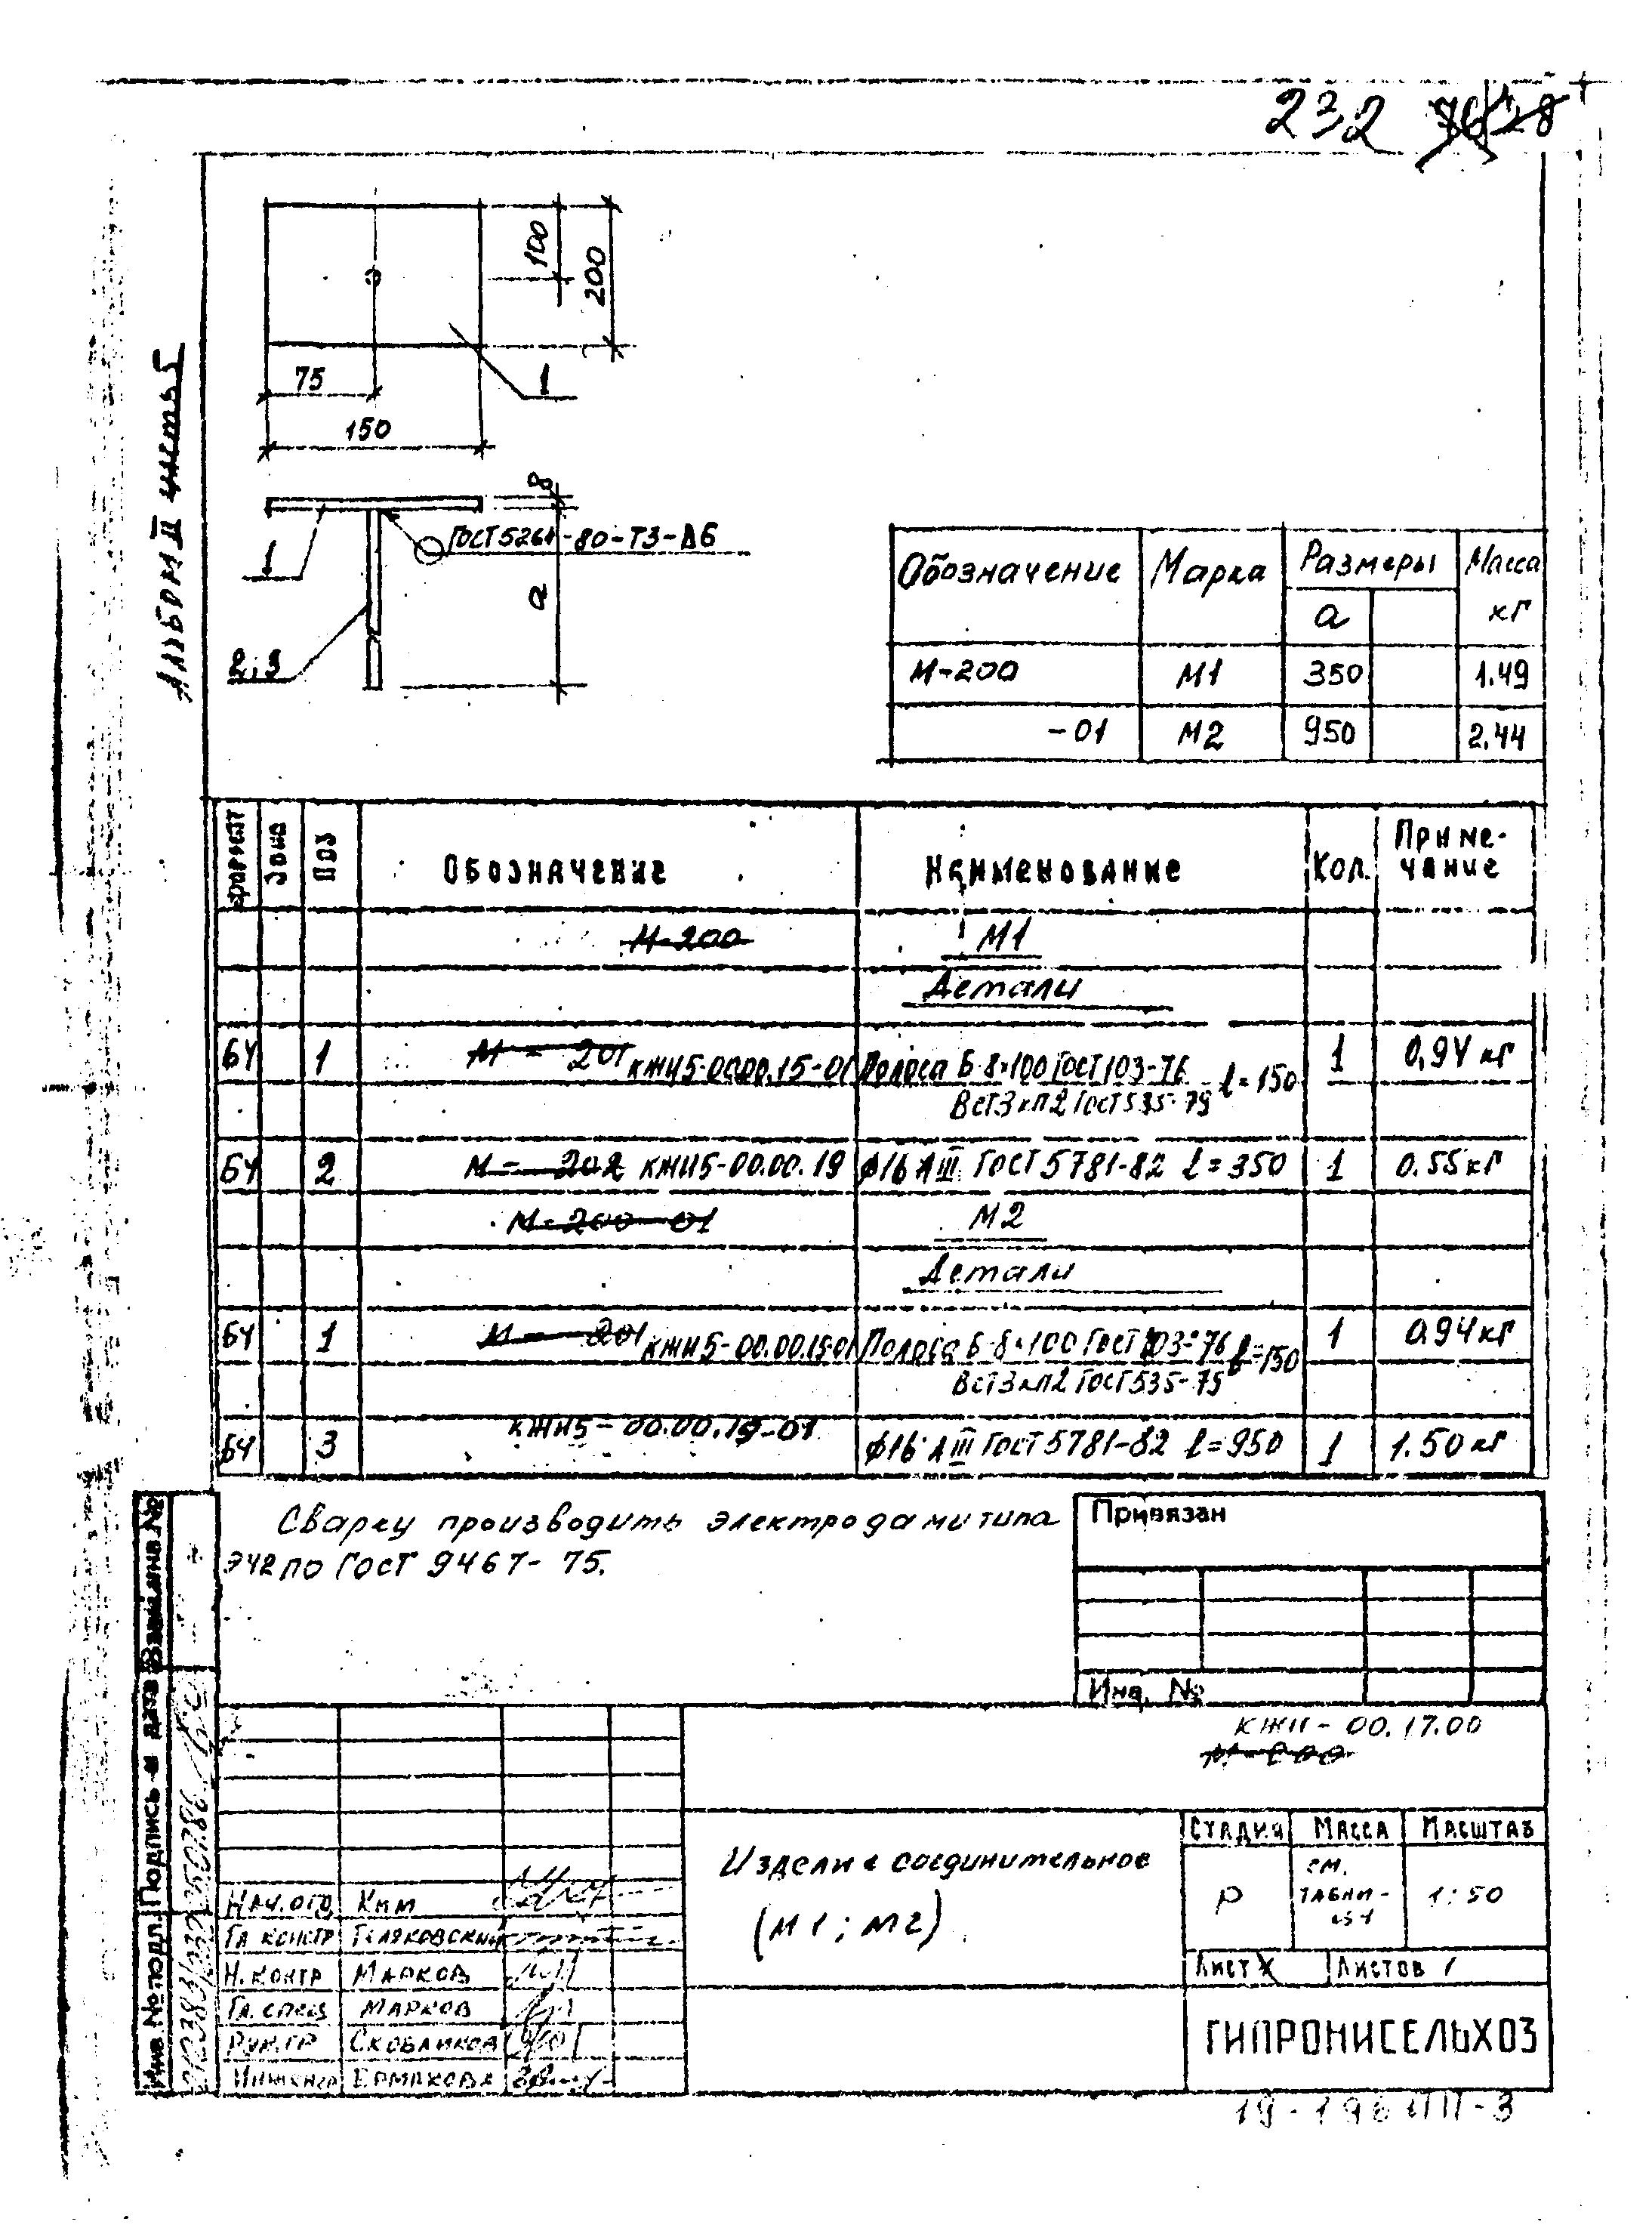 232
Альбом II часть 5
100
200
75
150
1
8
ГОСТ 5264-80-Т3-Δ6
1
а
2;3
Обозначение Марка Размеры Масса кг
а
М-200 М1 350 1.49
-01 М2 950 2.44
Формат Зона Поз Обозначение Наименование Кол. Примечание
М-200 М1
Детали
БЧ 1 М-201 КЖИ5-00.00.15-01 Полоса Б-8×100 ГОСТ 103-76 l=150 1 0,94 кг
ВСт3кп2 ГОСТ 535-79
БЧ 2 М-202 КЖИ5-00.00.19 ф16 АIII ГОСТ 5781-82 l=350 1 0.55 кг
М-200-01 М2
Детали
БЧ 1 М-201 КЖИ5-00.00.15-01 Полоса Б-8×100 ГОСТ 103-76 l=150 1 0.94 кг
ВСт3кп2 ГОСТ 535-75
БЧ 3 КЖИ5-00.00.19-01 ф16 АIII ГОСТ 5781-82 l=950 1 1.50 кг
Сварку производить электродами типа
Э42 по ГОСТ 9467-75.
Привязан
Инв. №
КЖИ-00.17.00
М-200
Изделие соединительное
(М1; М2)
Стадия Масса Масштаб
Р см. таблицу 1:50
Лист Листов 1
ГИПРОНИСЕЛЬХОЗ
Нач. отд Ким
Гл. констр
Н. контр Марков
Гл. спец Марков
Рук. гр Скобликова
Инженер Ермакова
Инв. № подл. Подпись и дата Взам. инв. №